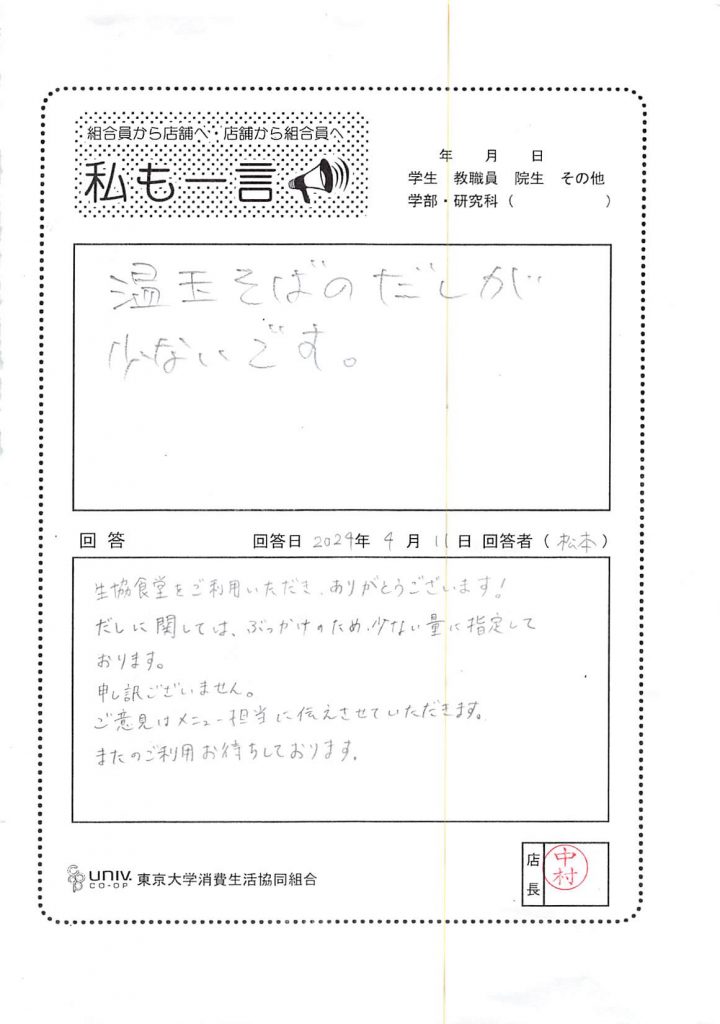 組合員から店舗へ・店舗から組合員へ
私も一言
年 月 日
学生 教職員 院生 その他
学部・研究科（ ）
温玉そばのだしが
少ないです。
回答 回答日 2024年 4月 11日 回答者（松本）
生協食堂をご利用いただき、ありがとうございます!
だしに関しては、ぶっかけのため、少ない量に指定して
おります。
申し訳ございません。
ご意見はメニュー担当に伝えさせていただきます。
またのご利用お待ちしております。
UNIV.
CO-OP
東京大学消費生活協同組合
店長
中村